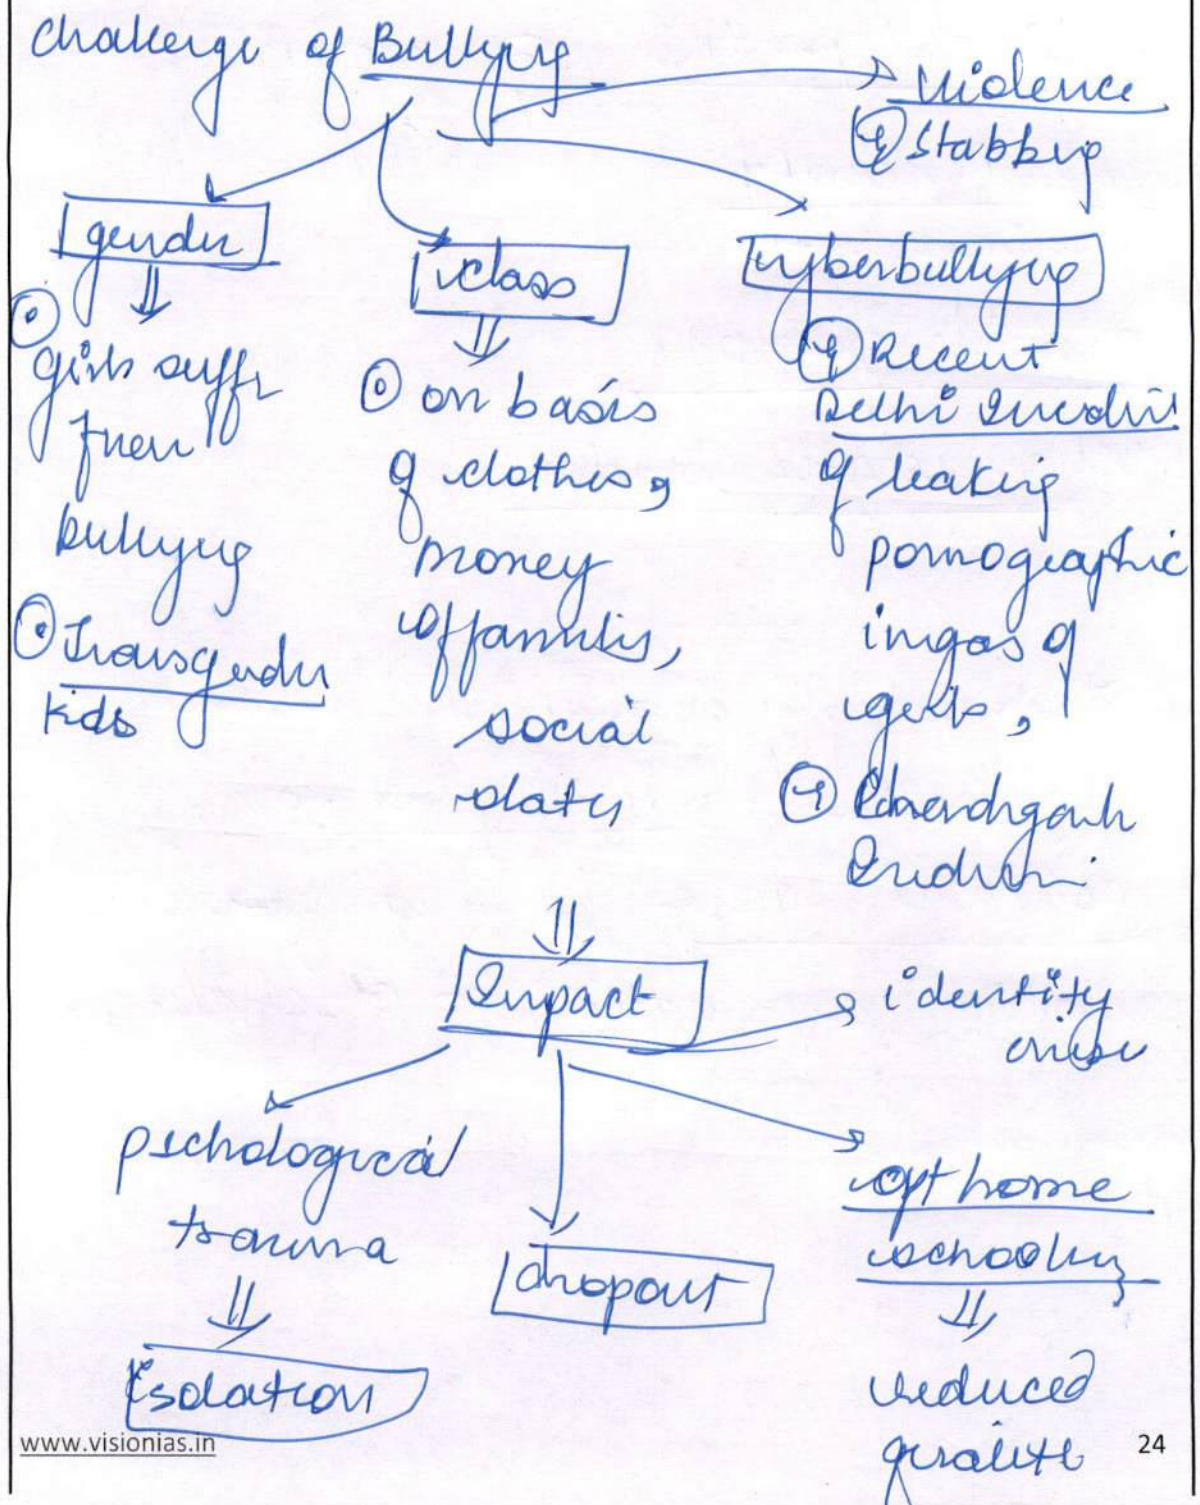 Challenge of Bullying
Violence
eg Stabbing
gender
girls suffer
from
bullying
Transgender
kids
class
on basis
of clothes,
money
of families,
social
status
cyberbullying
eg Recent
Delhi Incident
of leaking
pornographic
imgas of
girls,
eg Chandigarh
Incident
Impact
identity
crisis
pschological
trauma
Isolation
dropout
opt home
schooling
reduced
quality
www.visionias.in
24